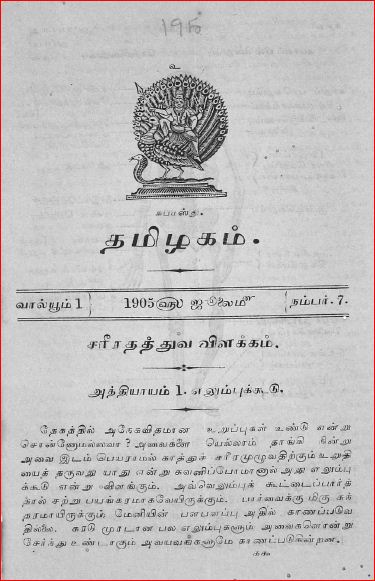 உ
சுபமஸ்து.
தமிழகம்.
வால்யூம் 1
1905ளு ஜூலைமீ
நம்பர். 7.
சரீரதத்துவ விளக்கம்.
அத்தியாயம் 1. எலும்புக்கூடு.
தேகத்தில் அநேகவிதமான உறுப்புகள் உண்டு என்று
சொன்னேமல்லவா? அவைகளை யெல்லாம் தாங்கி நின்று
அவை இடம் பெயராமல் காத்துச் சரீரமுழுவதிற்கும் உறுதி
யைத் தருவது யாது என்று கவனிப்போமானால் அது எலும்பு
க்கூடு என்று விளங்கும். அவ்வெலும்புக் கூட்டைப்பார்த்
தால் சற்று பயங்கரமாகவேயிருக்கும். பார்வைக்கு மிரு சுந்
தரமாயிருக்கும் மேனியின் பளபளப்பு அதில் காணப்படுவ
தில்லை. கரடு முரடான பல எலும்புகளும் அவைகளொன்று
சேர்ந்து உண்டாகும் அவயவங்களுமே காணப்படுகின்றன.